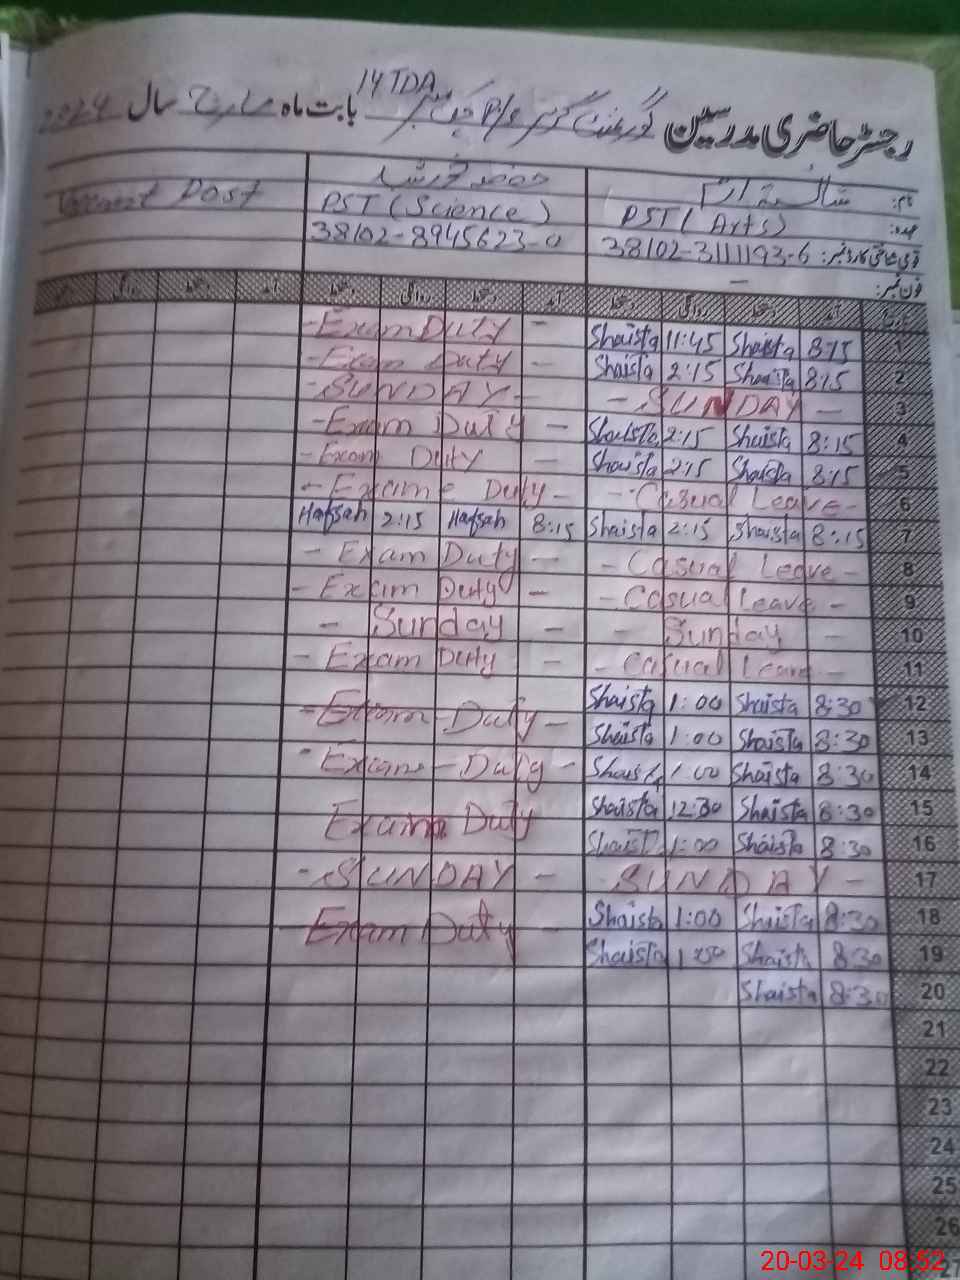 رجسٹر حاضری مدرسین گورنمنٹ گرلز P/S چک نمبر 14 TDA بابت ماہ مارچ سال 2024
نام: شائستہ ارم حفصہ خورشید Vacant Post
عہدہ: PST (Arts) PST (Science)
قومی شناختی کارڈ نمبر: 38102-3111193-6 38102-8945623-0
فون نمبر: —
تاریخ آمد دستخط روانگی دستخط آمد دستخط روانگی دستخط آمد دستخط روانگی دستخط
1 8:15 Shaista 11:45 Shaista - Exam Duty -
2 8:15 Shaista 2:15 Shaista - Exam Duty -
3 - SUNDAY - - SUNDAY -
4 8:15 Shaista 2:15 Shaista - Exam Duty -
5 8:15 Shaista 2:15 Shaista - Exam Duty -
6 - Casual Leave - - Exame Duty -
7 8:15 Shaista 2:15 Shaista 8:15 Hafsah 2:15 Hafsah
8 - Casual Leave - - Exam Duty -
9 - Casual Leave - - Exam Duty -
10 - Sunday - - Sunday -
11 - Casual Leave - - Exam Duty -
12 8:30 Shaista 1:00 Shaista - Exam - Duty -
13 8:30 Shaista 1:00 Shaista
14 8:30 Shaista 1:00 Shaista - Exam - Duty -
15 8:30 Shaista 12:30 Shaista Exam Duty
16 8:30 Shaista 1:00 Shaista
17 - SUNDAY - - SUNDAY -
18 8:30 Shaista 1:00 Shaista Exam Duty -
19 8:30 Shaista 1:00 Shaista
20 8:30 Shaista
21
22
23
24
25
26
27
20-03-24 08:52